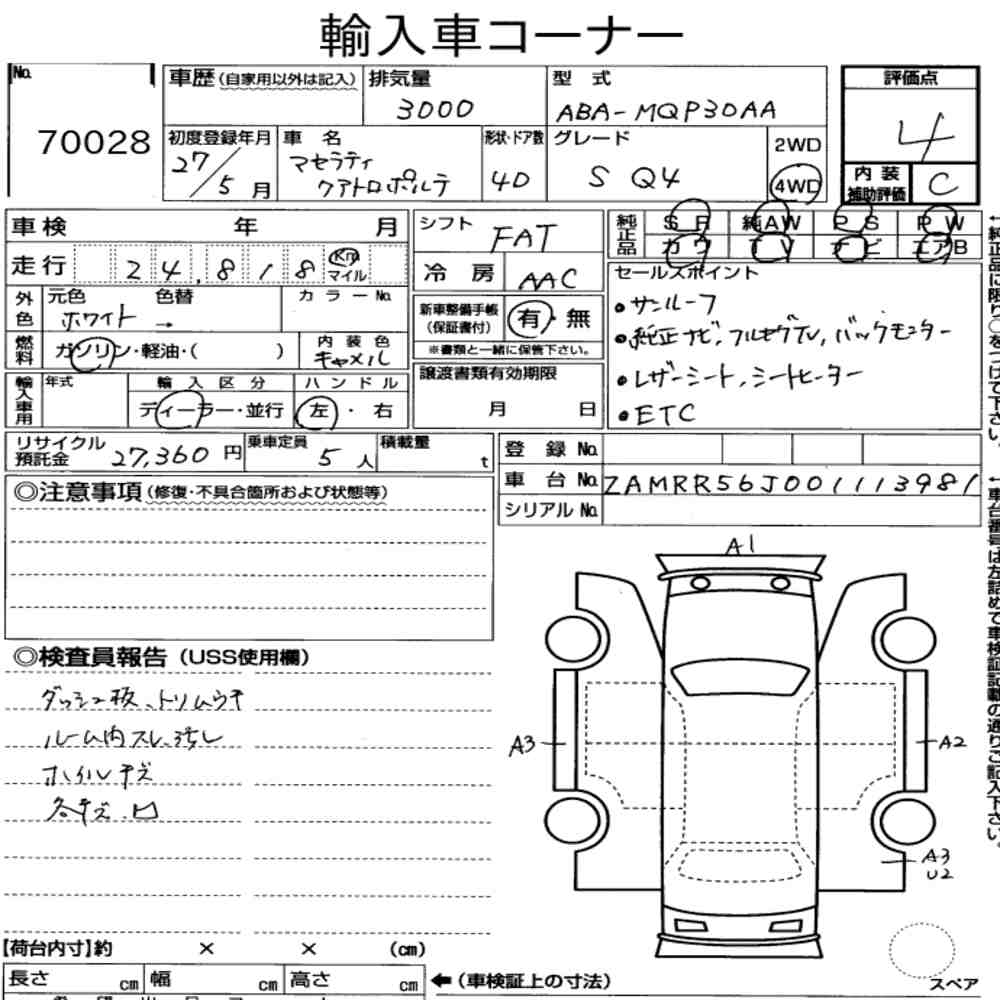 輸入車コーナー
No. 70028
車歴 (自家用以外は記入)
排気量 3000
型 式 ABA-MQP30AA
初度登録年月 27/5 月
車 名 マセラティ クアトロポルテ
形状・ドア数 4D
グレード S Q4
2WD
4WD
評価点 4
内装補助評価 C
車検 年 月
走行 24,818 Km マイル
外色 元色 ホワイト 色替 → カラーNo.
燃料 ガソリン・軽油・( )
内装色 キャメル
輸入車用 年式
輸入区分 ディーラー・並行
ハンドル 左・右
シフト FAT
冷房 AAC
新車整備手帳 (保証書付) 有・無
※書類と一緒に保管下さい。
譲渡書類有効期限
月 日
純正品 SR 純AW PS PW
カワ TV ナビ エアB
セールスポイント
・サンルーフ
・純正ナビ, フルセグTV, バックモニター
・レザーシート, シートヒーター
・ETC
リサイクル預託金 27,360 円
乗車定員 5 人
積載量 t
登 録 No.
車 台 No. ZAMRR56J001113981
シリアル No.
◎注意事項 (修復・不具合箇所および状態等)
◎検査員報告 (USS使用欄)
ダッシュ板、トリムウキ
ルーム内スレ、汚レ
ホイルキズ
各キズ、凹
A1
A3
A2
A3
U2
スペア
【荷台内寸】約 × × (cm)
長さ cm 幅 cm 高さ cm
← (車検証上の寸法)
↑純正品に限り○をつけて下さい。
↑車台番号は左詰めで車検証記載の通りご記入下さい。